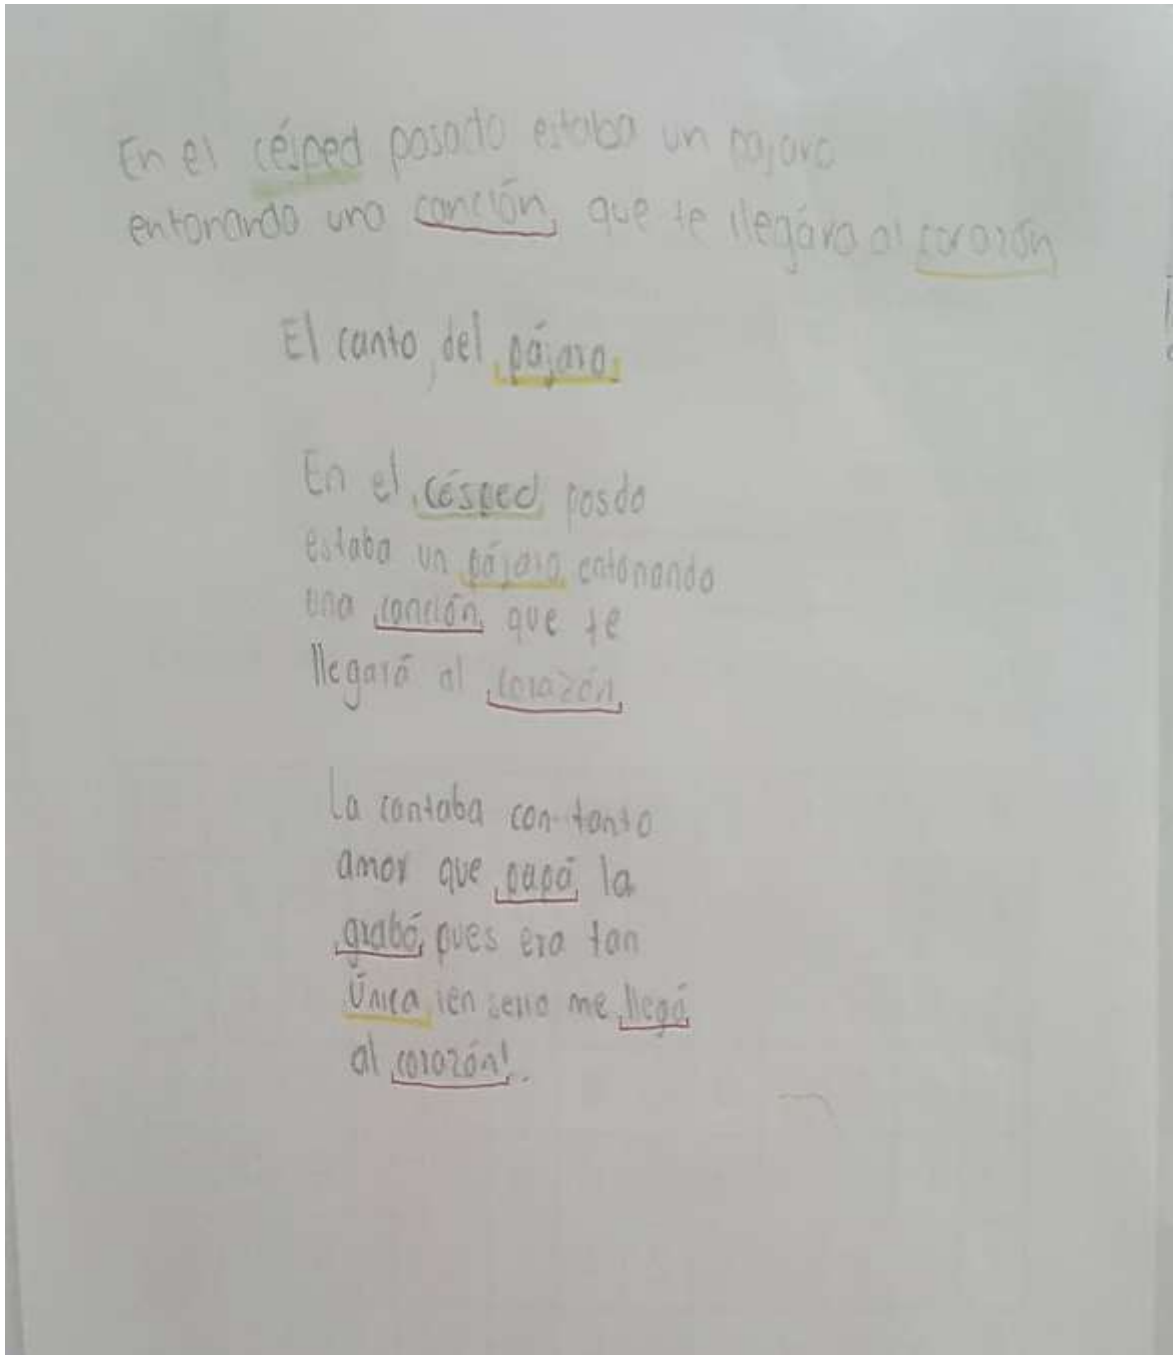 En el césped posado estaba un pajaro
entonando una canción, que te llegára al corazón
El canto, del pájaro
En el césped posdo
estaba un pájaro entonando
una canción que te
llegará al corazón
La cantaba con tanto
amor que papá la
grabó, pues era tan
Única ¡en serio me llegó
al corazón!.